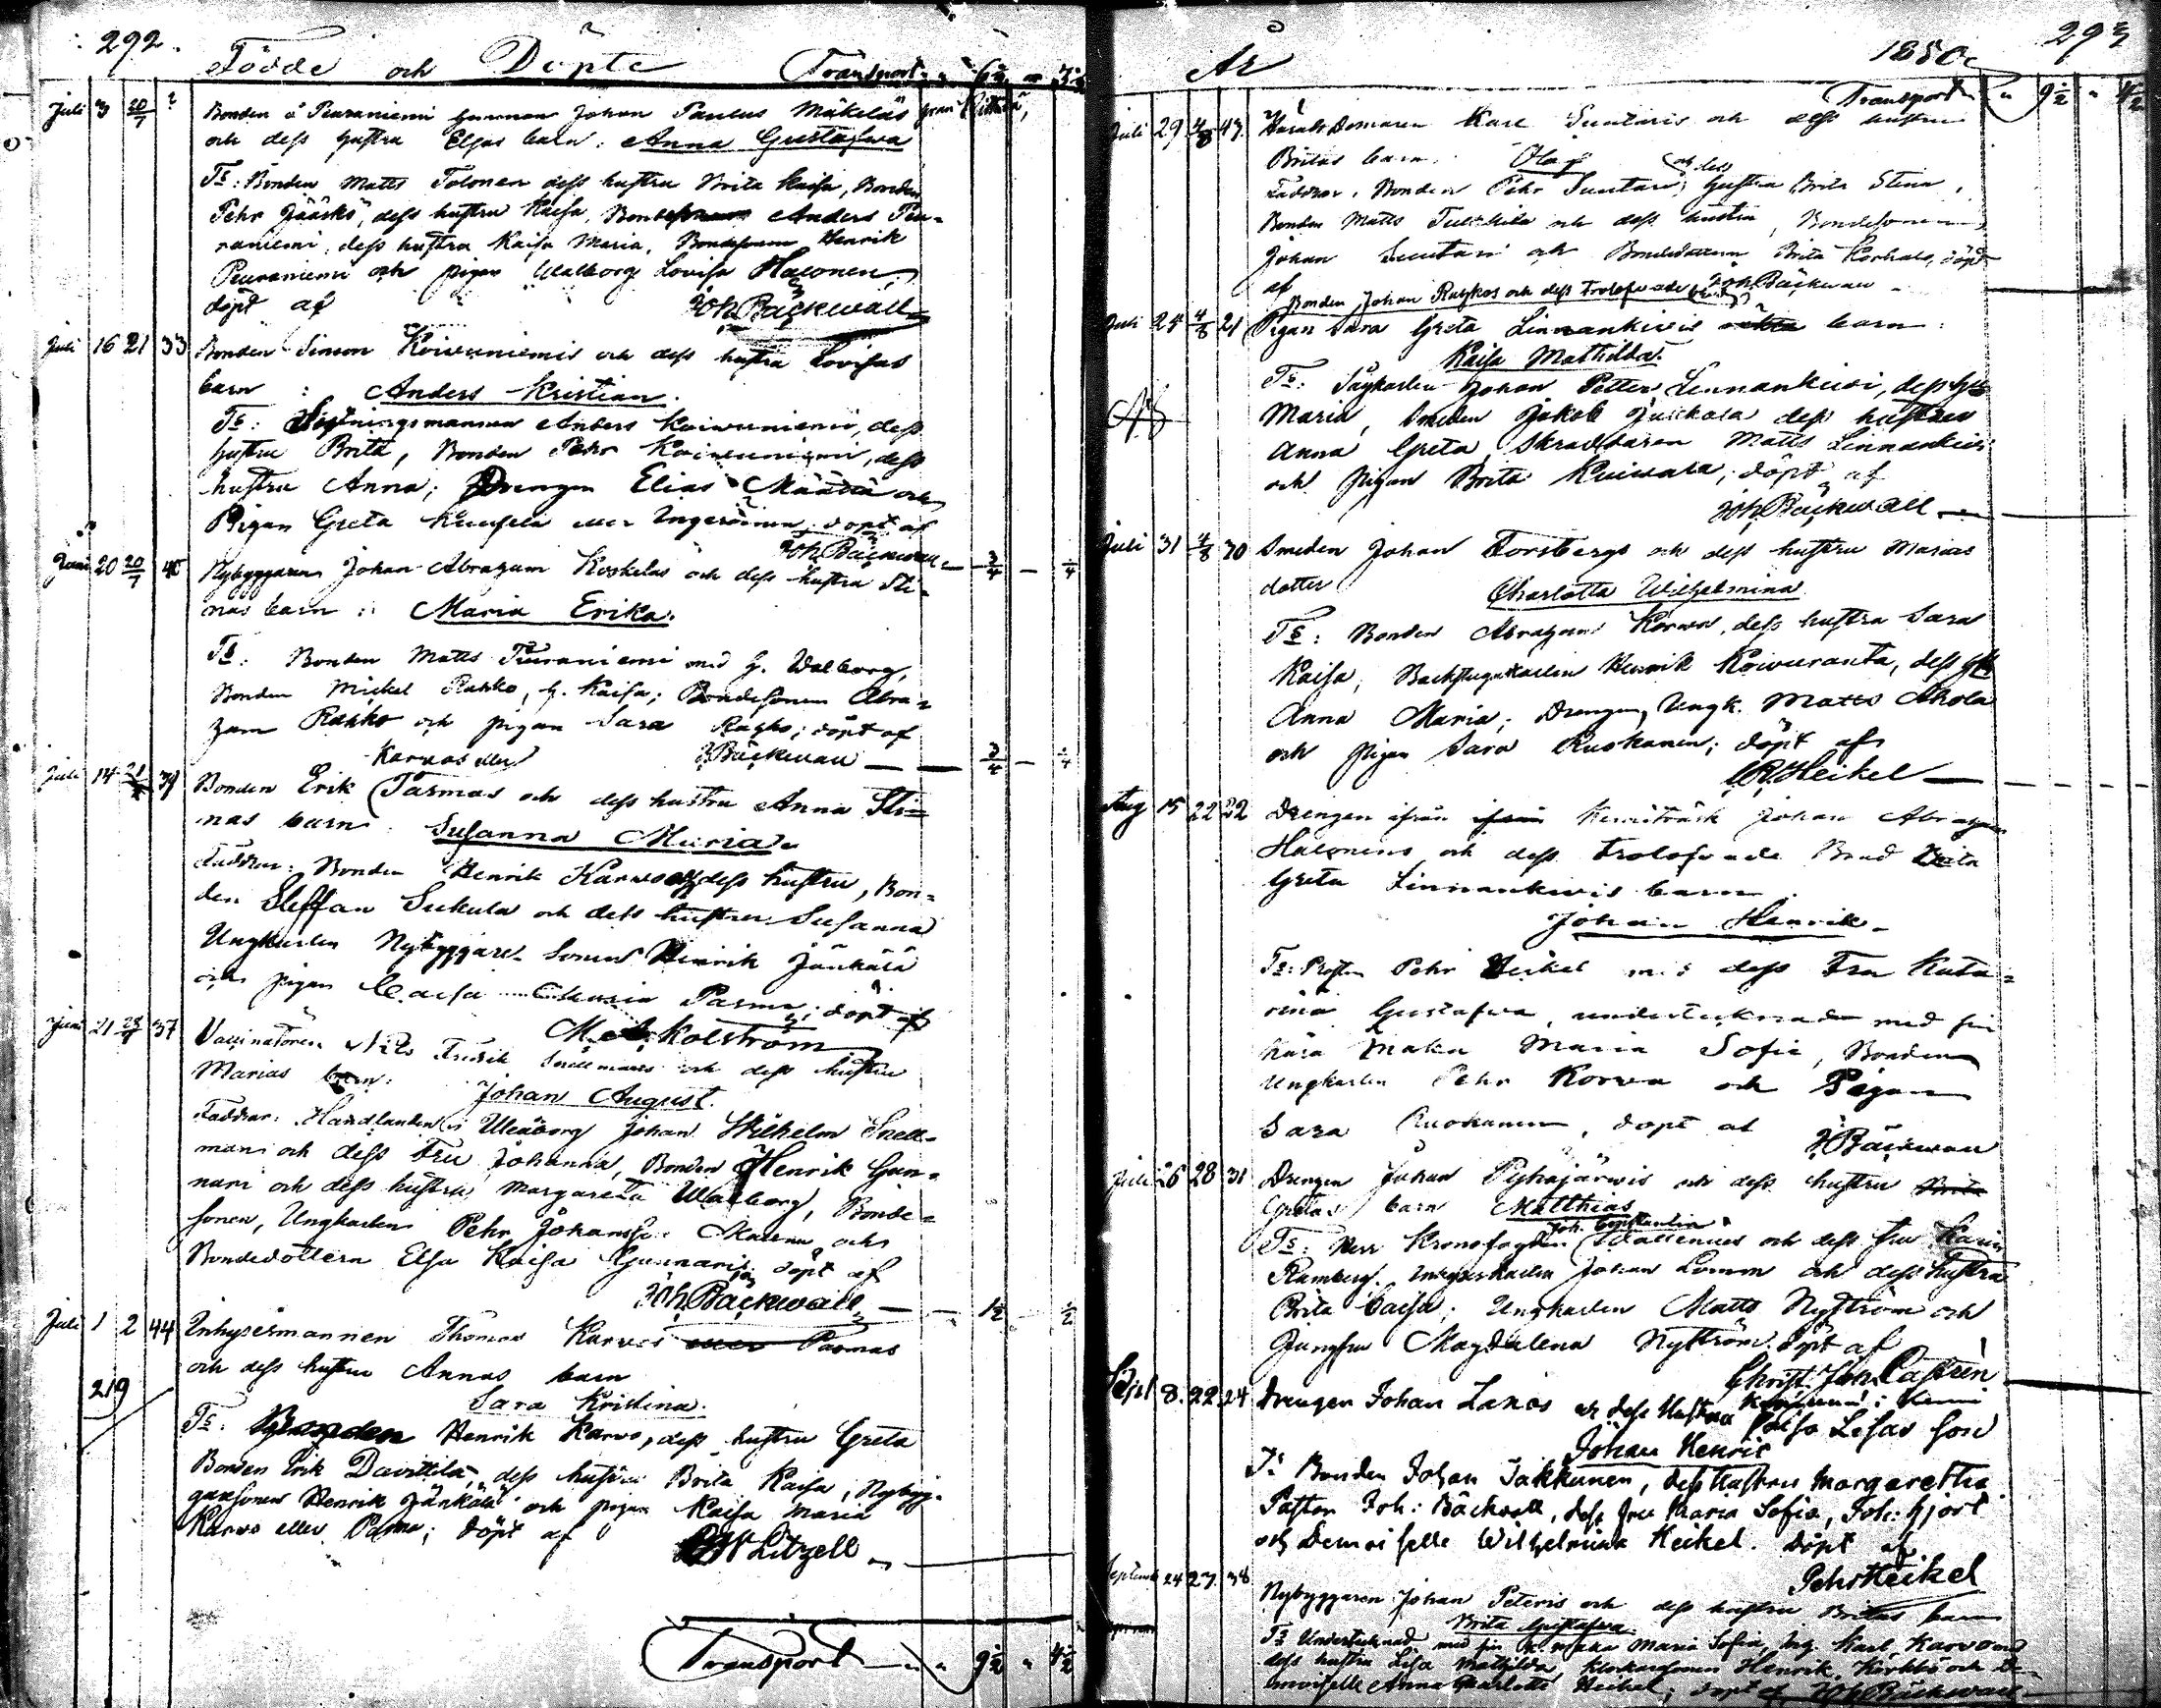 292.
Födde och Döpte Transport 6½ 3½
Juli 3 20/7 ? Bonden å Peuraniemi hemman Johan Paulus Mäkeläs från Kittilä,
och dess hustru Elsas barn: Anna Gustafwa
Ts: Bonden Matts Tolonen dess hustru Brita Kaisa, Bonden
Pehr Jääskö, dess hustru Kaisa, Anders Peu-
raniemi, dess hustru Kaisa Maria, Bondesonen Henrik
Peuraniemi och pigan Walborg Lovisa Halonen,
döpt af Joh Bäckwall
Juli 16 21 33 Bonden Simon Koivuniemis och dess hustru Lovisas
barn : Anders Kristian.
Ts: Anders Koivuniemi, dess
hustru Brita, Bonden Pehr Koivuniemi, dess
hustru Anna; Drengen Elias Määttä och
Pigan Greta eller döpt af
Joh Bäckwall
Juni 20 20/7 40 Nybyggaren Johan Abraham Koskelas och dess hustru Sti- 3/4 1/4
nas barn : Maria Erika.
Ts: Bonden Matts Peuraniemi med h. Walborg,
Bonden Mickel Rakko, h. Kaisa; Bondesonen Abra-
ham Rahko och pigan Sara Rahko; döpt af
Karvos eller J Bäckwall 3/4 1/4
Juli 14 21 39 Bonden Erik Parmas och dess hustru Anna Sti-
nas barn. Susanna Maria
Faddrar: Bonden Henrik Karvo och dess hustru, Bon-
den Steffan Sukula och dess hustru Susanna
Ungkarlen Nybyggare Sonen Henrik Jänkälä
och pigan Caisa Maria Parma; döpt af
M. A. Kolström
Juni 21 37 Vaccinatören Nils Fredrik Snellmans och dess hustru
Marias barn: Johan August.
Faddrar: Handlanden i Uleåborg Johan Wilhelm Snell-
man och dess Fru Johanna, Bonden Henrik Gun-
nari och dess hustru Margareta Walborg, Bonde-
sonen, Ungkarlen Pehr Johansson Marenu och
Bondedottern Elsa Kaisa Gunnari; döpt af
Joh Bäckwall 1½ ½
Juli 1 2 44 Inhysesmannen Thomas Karvos eller Parmas
och dess hustru Annas barn
219 Sara Kristina.
Ts: Bonden Henrik Karvo, dess hustru Greta
Bonden Erik Davittila, dess hustru Brita Kaisa, Nybyg-
garsonen Henrik Jänkälä och pigan Kaisa Maria
Karvo eller Parma; döpt af
Litzell
Transport 9½ 4½
År 1850 293
Transport 9½ 4½
Juli 29 4/8 43 Härads Domaren Karl Suutaris och dess hustru
Britas barn. Olof
och dess
Faddrar. Bonden Pehr Suutari, hustru Brita Stina,
Bonden Matts och dess hustru, Bondesonen
Johan Suutari och Bondedottern Brita Korhalo, döpt
af Joh Bäckwall
Bonden Johan Raskos och dess trolofvade
Juli 24 4/8 21 Pigan Sara Greta Linnankivis barn:
Kaisa Mathilda.
Ts: Sågkarlen Johan Petter Linnankivi, dess h
Maria, Smeden Jakob Juskola dess hustru
Anna Greta, Skräddaren Matts Linnankivi
och pigan Brita Kuivala; döpt af
Joh Bäckwall
Juli 31 4/8 30 Smeden Johan Forsbergs och dess hustru Marias
dotter Charlotta Wilhelmina
Ts: Bonden Abraham Korva, dess hustru Sara
Kaisa, Backstugukarlen Henrik Koivuranta, dess h
Anna Maria; Drengen, Ungk. Matts Ahola
och pigan Sara Ruokanen; döpt af
Heikel
Aug 15 22 22 Drengen ifrån Kemiträsk Johan Abraham
Halonens och dess trolofvade Brud Brita
Greta Linnankivis barn
Johan Henrik
Ts: Prosten Pehr Heikel med dess Fru Kata-
rina Gustafva, undertecknad med sin
kära Maka Maria Sofia, Bonden
Ungkarlen Pehr Korva och Pigan
Sara Ruokanen, döpt af J Bäckwall
Juli 26 28 31 Drengen Johan Pyhäjärvis och dess hustru Brita
Gretas barn Matthias
Joh. Constantin
Ts: Herr Kronofogden Wallenius och dess fru Karin
Ramberg. Johan Lomm och dess hustru
Brita Caisa; Ungkarlen Matts Nyström och
Jungfru Magdalena Nyström. döpt af
Christ. Joh. Castrén
i Kemi
Sept 8. 22. 24 Drengen Johan Lanos och dess Hustru Lisas son
Johan Henric
Ts Bonden Johan Jakkunen, dess Hustru Margaretha
Pastor Joh: Bäckwall, dess fru Maria Sofia, Joh: Hjort
och Demoiselle Wilhelmina Heikel. döpt af
Pehr Heikel
September 24 27 38 Nybyggaren Johan Peteris och dess hustru Britas barn
Brita Gustafva.
Ts Undertecknad med sin k. maka Maria Sofia, Karl Karvo med
dess hustru Lisa Mathilda, Klockarsonen Henrik Kerkkö och De-
moiselle Anna Charlotte Heikel; döpt af Joh Bäckwall